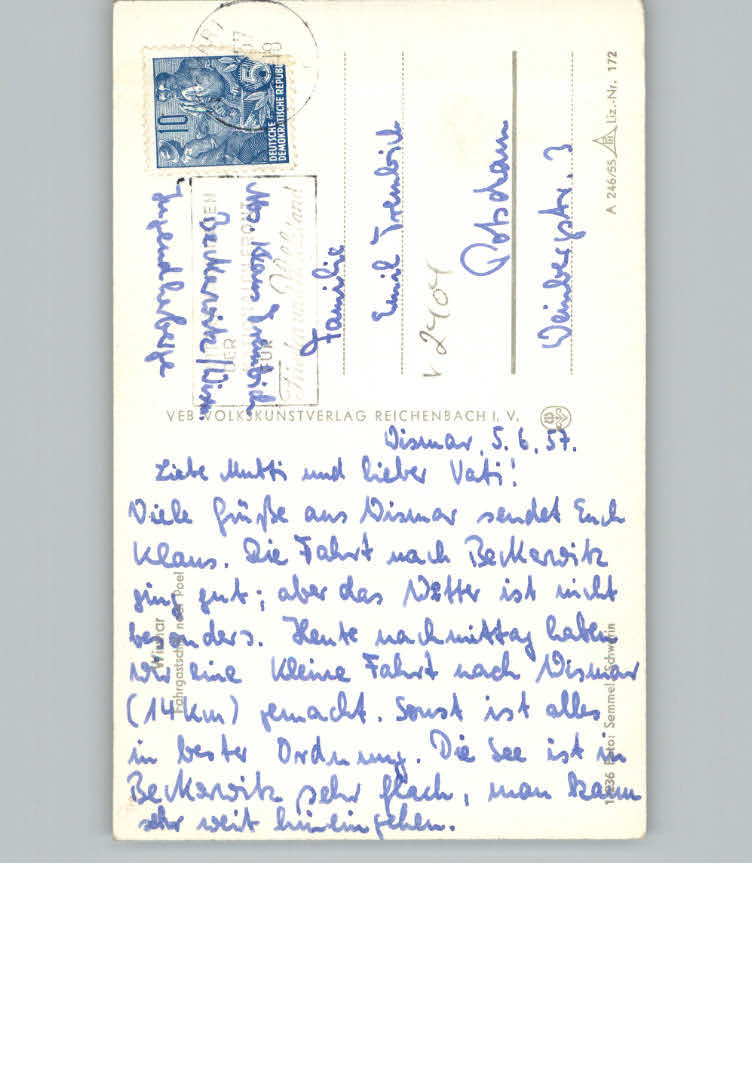 Wismar, 5. 6. 57.
Liebe Mutti und lieber Vati!
Viele Grüße aus Wismar sendet Euch
Klaus. Die Fahrt nach Beckerwitz
ging gut; aber das Wetter ist nicht
besonders. Heute nachmittag haben
wir eine kleine Fahrt nach Wismar
(14 km) gemacht. Sonst ist alles
in bester Ordnung. Die See ist in
Beckerwitz sehr flach, man kann
sehr weit hineingehen.
Familie
Emil
Potsdam
Weinbergstr.
Abs. Klaus
Beckerwitz/Wism.
Jugendherberge
V 2404
10
5
DEUTSCHE
DEMOKRATISCHE REPUBLIK
DER
FÜR
VEB VOLKSKUNSTVERLAG REICHENBACH I. V.
A 246/55 Liz.-Nr. 172
Wismar
Fahrgastschiff nach Poel
Foto: Semmel, Schwerin